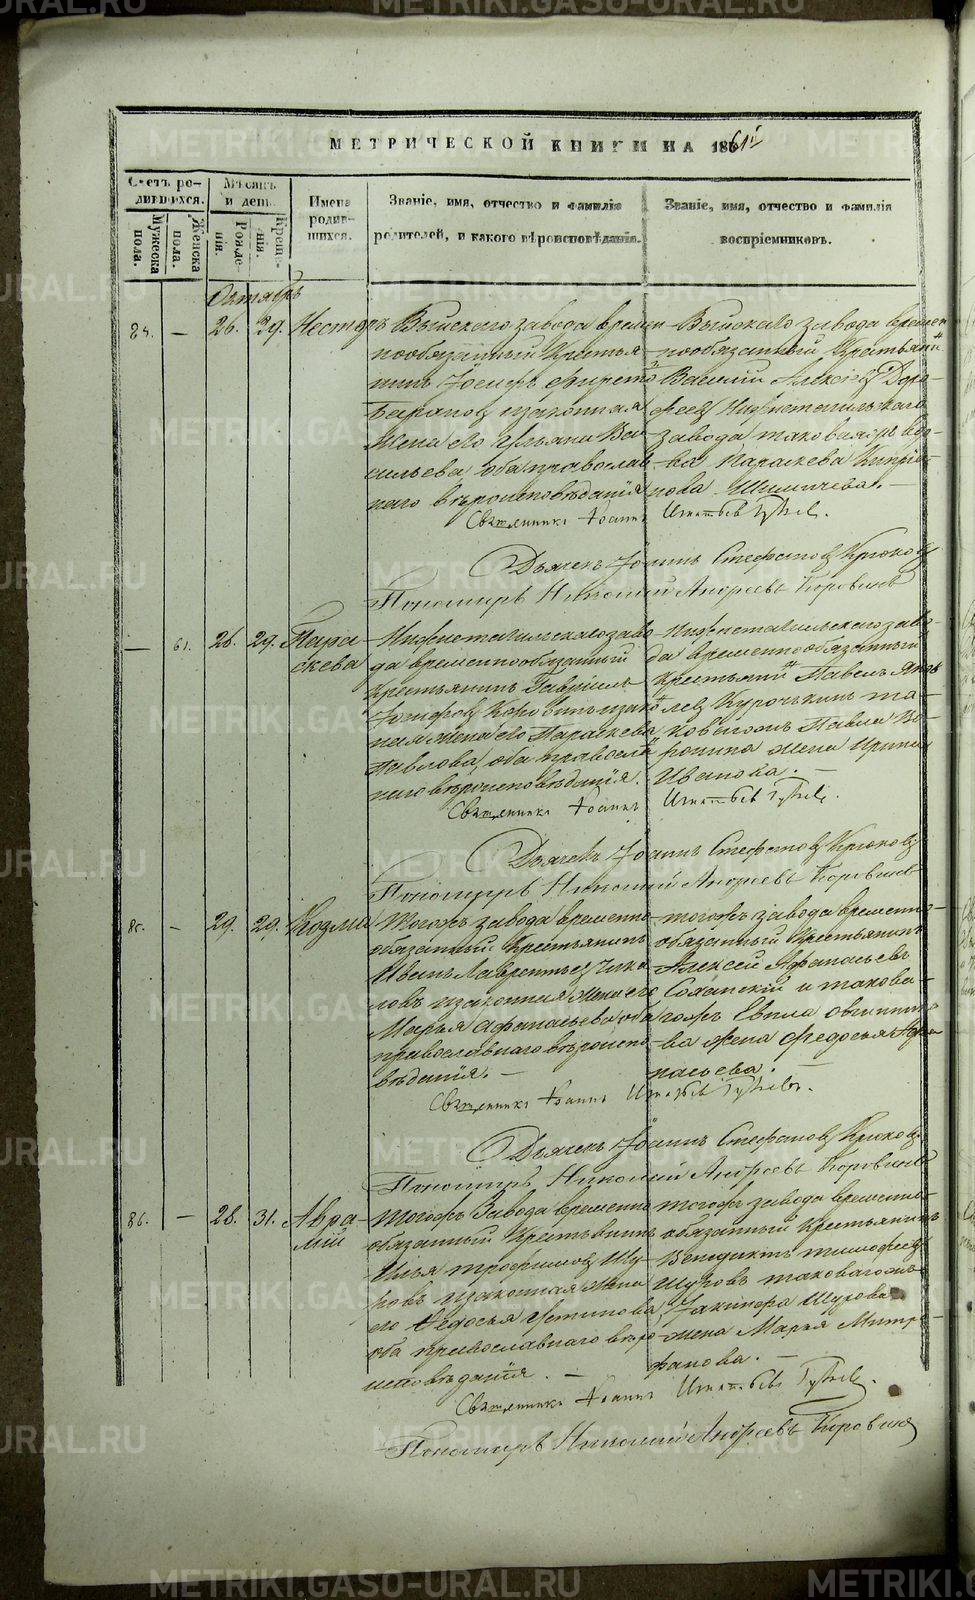 МЕТРИЧЕСКОЙ КНИГИ НА 1861й
Счетъ родившихся.
Мужеска пола.
Женска пола.
Мѣсяцъ и день.
Рожденія.
Крещенія.
Имена родившихся.
Званіе, имя, отчество и фамилія родителей, и какого вѣроисповѣданія.
Званіе, имя, отчество и фамилія воспріемниковъ.
Октябрь
84. — 26. 29. Несторъ
Выйскаго завода времен-
нообязанный Крестья-
нинъ Іосифъ
Барановъ и законная
жена его Ульяна Ва-
сильева оба православ-
наго вѣроисповѣданія
Выйскаго завода времен-
нообязанный Крестьянинъ
Василій Алексіевъ Доро-
феевъ Нижнетагильскаго
завода таковагожъ вдо-
ва Параскева Кипріа-
нова
Священникъ Іоаннъ Игнатьевъ
Дьячекъ Іоаннъ Стефановъ Крюковъ
Пономарь Николай Андреевъ Коровинъ
— 61. 26. 29. Пара-
скева
Нижнетагильскаго заво-
да временнообязанный
Крестьянинъ Гавріилъ
и закон-
ная жена его Параскева
Павлова, оба православ-
наго вѣроисповѣданія.
Нижнетагильскаго заво-
да временнообязанный
Крестьянинъ Павелъ Яков-
левъ Курочкинъ та-
ковагожъ Павла Во-
ронина жена Ирина
Иванова. —
Священникъ Іоаннъ Игнатьевъ
Дьячекъ Іоаннъ Стефановъ Крюковъ
Пономарь Николай Андреевъ Коровинъ
85. — 29. 29. Козма
Тогожъ завода временно-
обязанный Крестьянинъ
Иванъ Лаврентьевъ Чика-
ловъ и законная жена его
Марья Афанасьева оба
православнаго вѣроиспо-
вѣданія. —
тогожъ завода временно-
обязанный Крестьянинъ
Алексей Афанасьевъ
и такова-
гожъ
жена Федосья Афа-
насьева. —
Священникъ Іоаннъ Игнатьевъ
Дьячекъ Іоаннъ Стефановъ Крюковъ
Пономарь Николай Андреевъ Коровинъ
86. — 28. 31. Авра-
мій
Тогожъ Завода временно
обязанный Крестьянинъ
Илья Трофимовъ Щу-
ровъ и законная жена
его Федосья Устинова
оба православнаго вѣро-
исповѣданія. —
тогожъ завода временно-
обязанный Крестьянинъ
Венедиктъ Тимофеевъ
Щуровъ таковагожъ
Щурова
жена Марья Митро-
фанова. —
Священникъ Іоаннъ Игнатьевъ
Пономарь Николай Андреевъ Коровинъ
METRIKI.GASO-URAL.RU